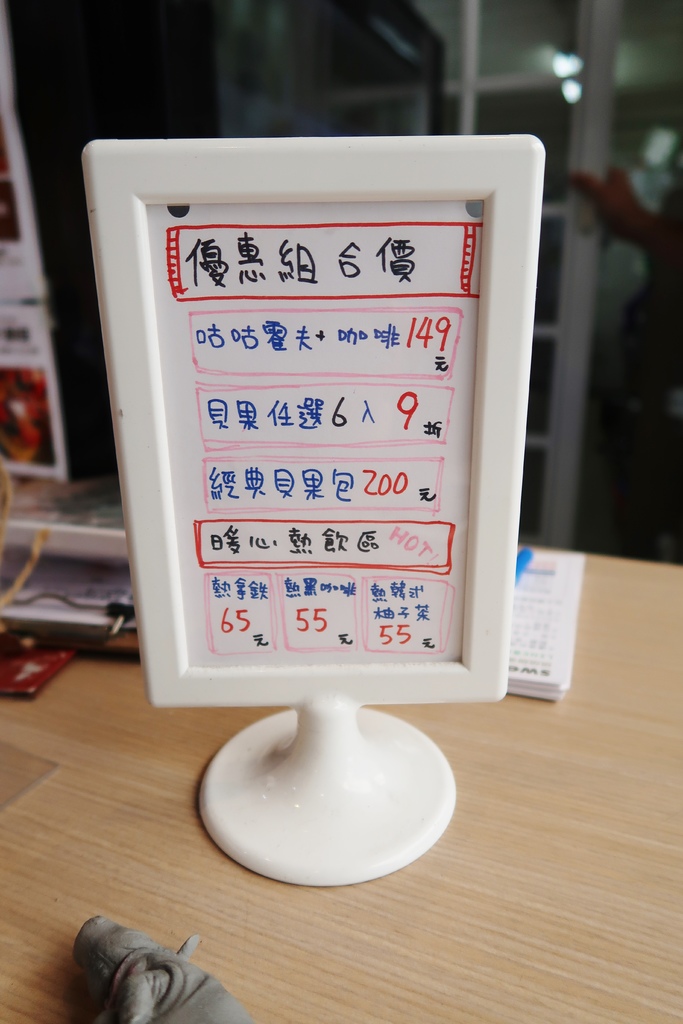 優惠組合價
咕咕霍夫+咖啡149元
貝果任選6入 9折
經典貝果包200元
暖心熱飲區 HOT!
熱拿鐵 65元
熱黑咖啡 55元
熱韓式柚子茶 55元